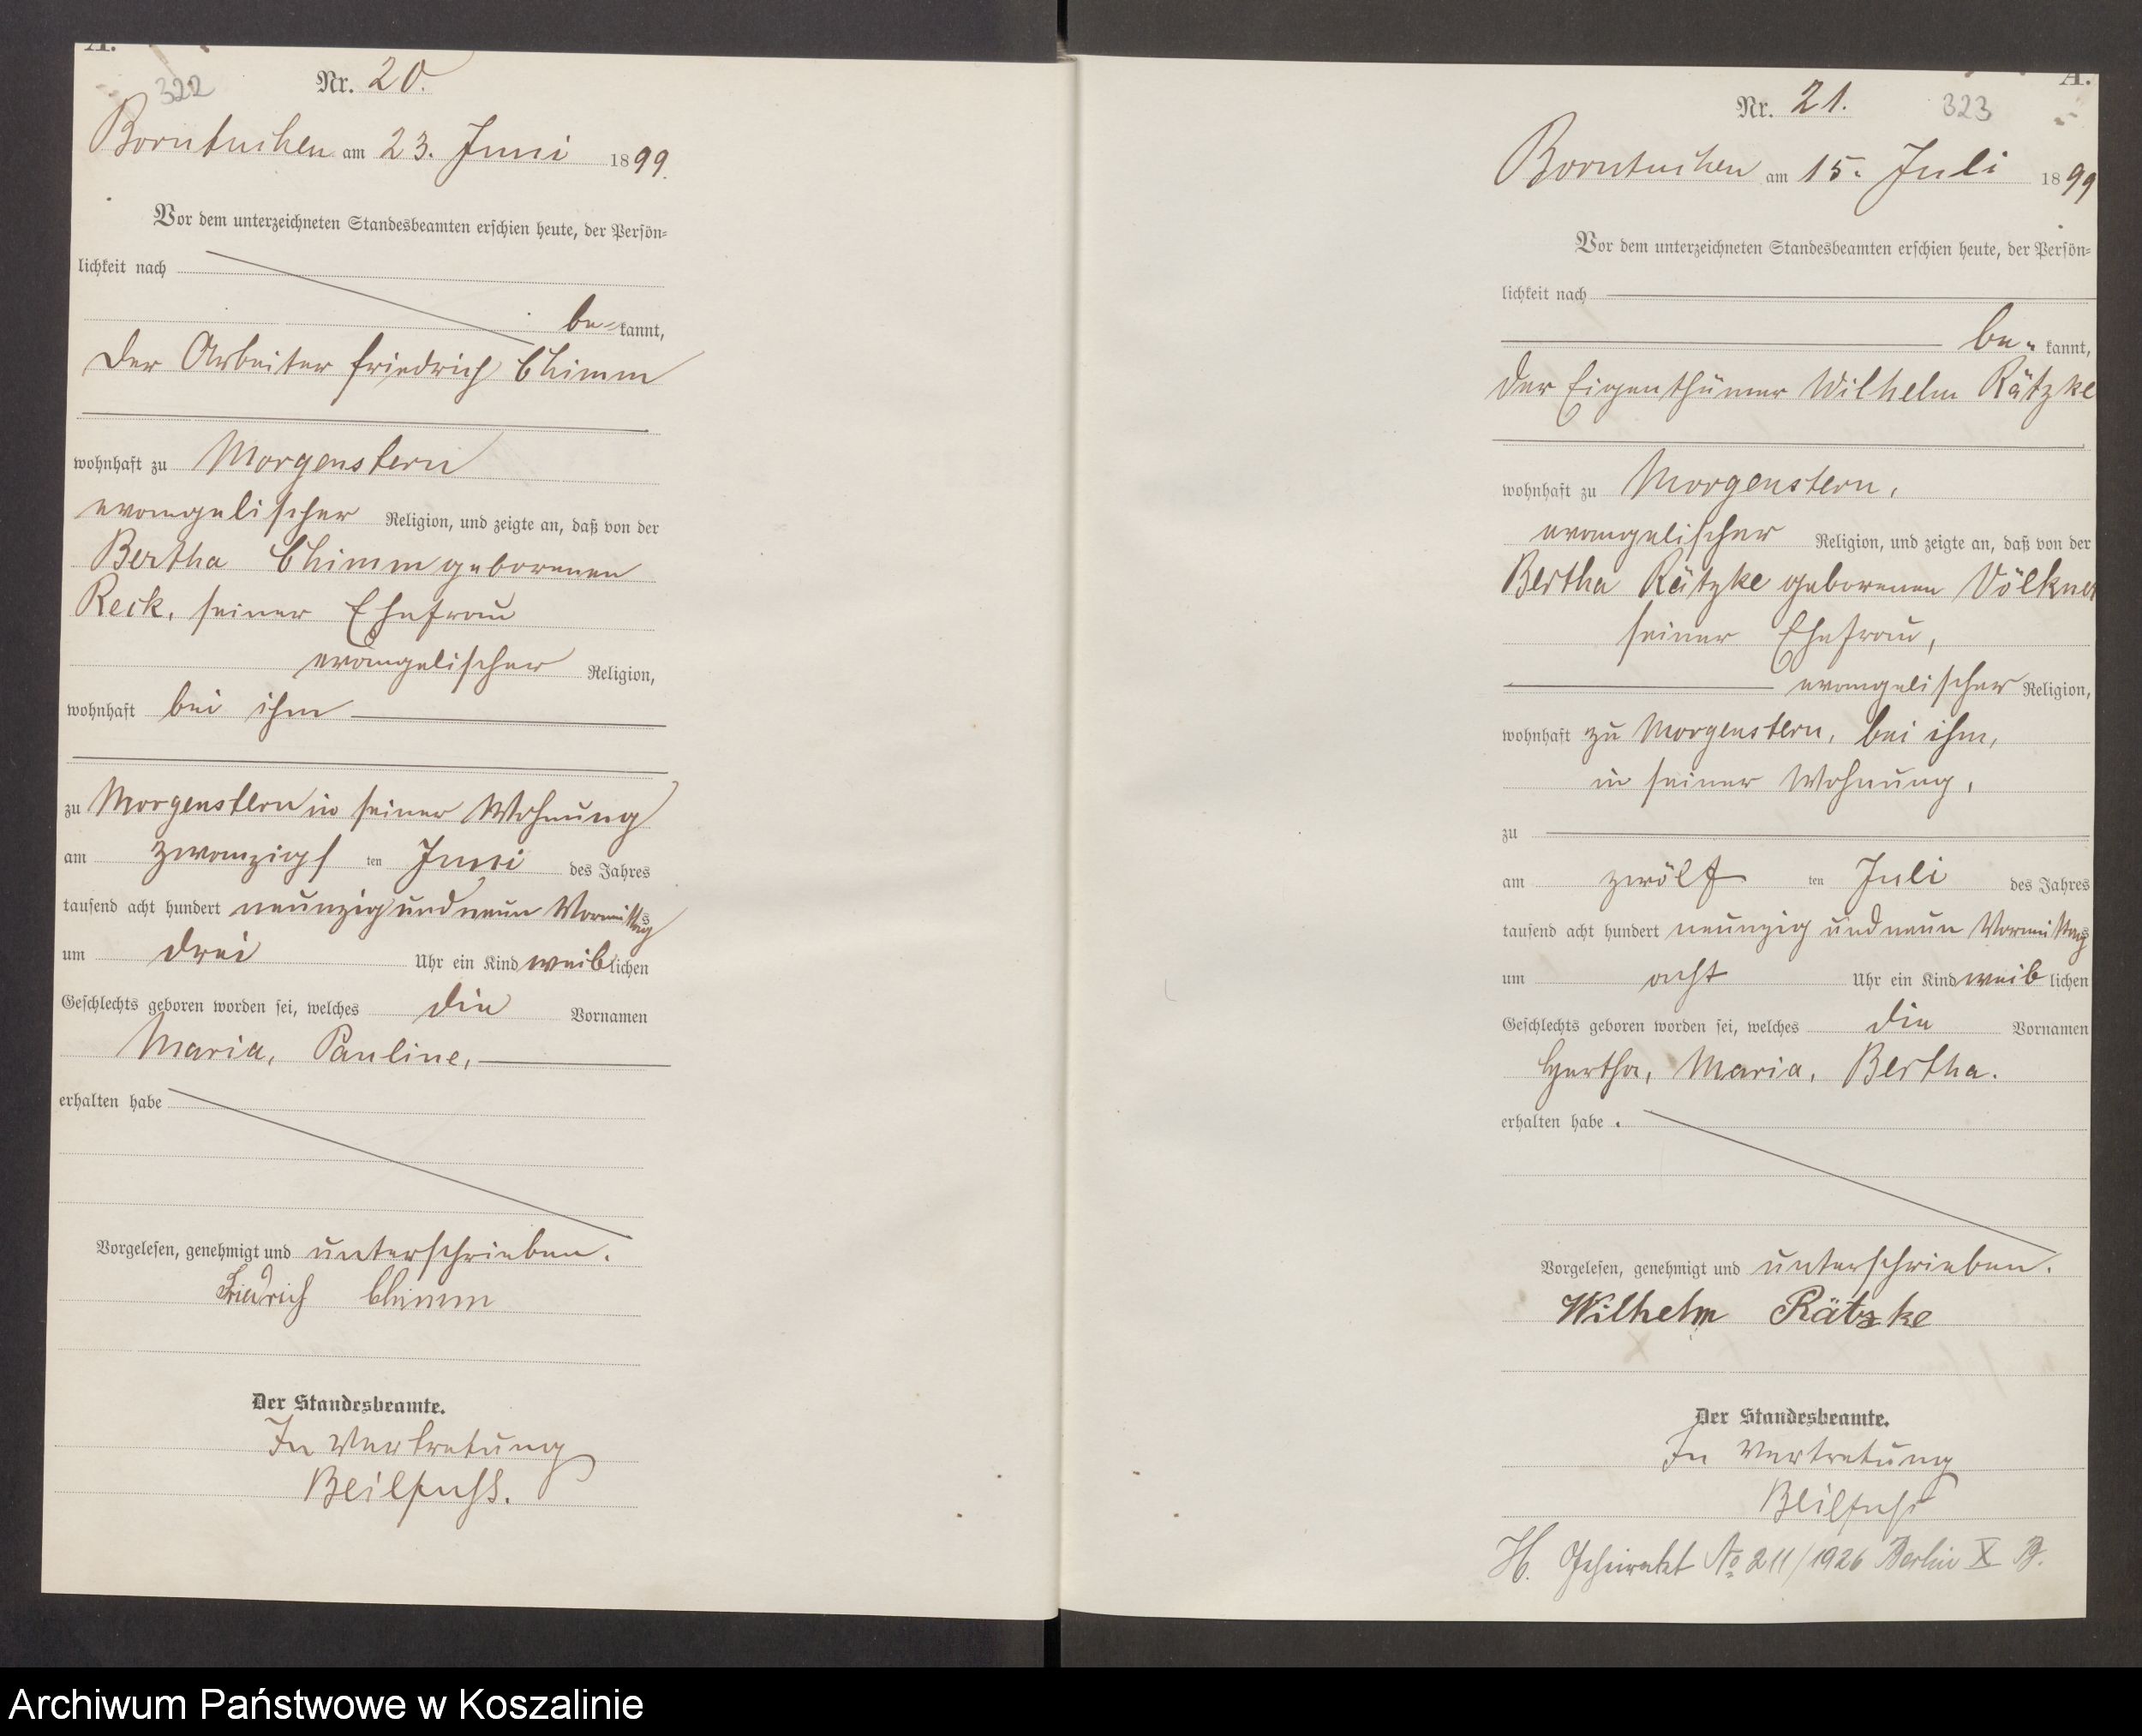 A.
322
Nr. 20.
Borntuchen am 23. Juni 1899.
Vor dem unterzeichneten Standesbeamten erschien heute, der Persön-
lichkeit nach
be- kannt,
der Arbeiter Friedrich Chimm
wohnhaft zu Morgenstern
evangelischer Religion, und zeigte an, daß von der
Bertha Chimm geborenen
Reck, seiner Ehefrau
evangelischer Religion,
wohnhaft bei ihm
zu Morgenstern in seiner Wohnung
am zwanzigs ten Juni des Jahres
tausend acht hundert neunzig und neun Vormittags
um drei Uhr ein Kind weiblichen
Geschlechts geboren worden sei, welches die Vornamen
Maria, Pauline,
erhalten habe
Vorgelesen, genehmigt und unterschrieben.
Friedrich Chimm
Der Standesbeamte.
In Vertretung
Beilfuß.
A.
Nr. 21.
323
Borntuchen am 15. Juli 1899
Vor dem unterzeichneten Standesbeamten erschien heute, der Persön-
lichkeit nach
be- kannt,
der Eigenthümer Wilhelm Rätzke
wohnhaft zu Morgenstern,
evangelischer Religion, und zeigte an, daß von der
Bertha Rätzke geborenen Völkner
seiner Ehefrau,
evangelischer Religion,
wohnhaft zu Morgenstern, bei ihm,
in seiner Wohnung,
zu
am zwölf ten Juli des Jahres
tausend acht hundert neunzig und neun Vormittags
um acht Uhr ein Kind weiblichen
Geschlechts geboren worden sei, welches die Vornamen
Hertha, Maria, Bertha.
erhalten habe.
Vorgelesen, genehmigt und unterschrieben.
Wilhelm Rätzke
Der Standesbeamte.
In Vertretung
Beilfuß
H. Geheiratet No 211/1926 Berlin X B.
Archiwum Państwowe w Koszalinie